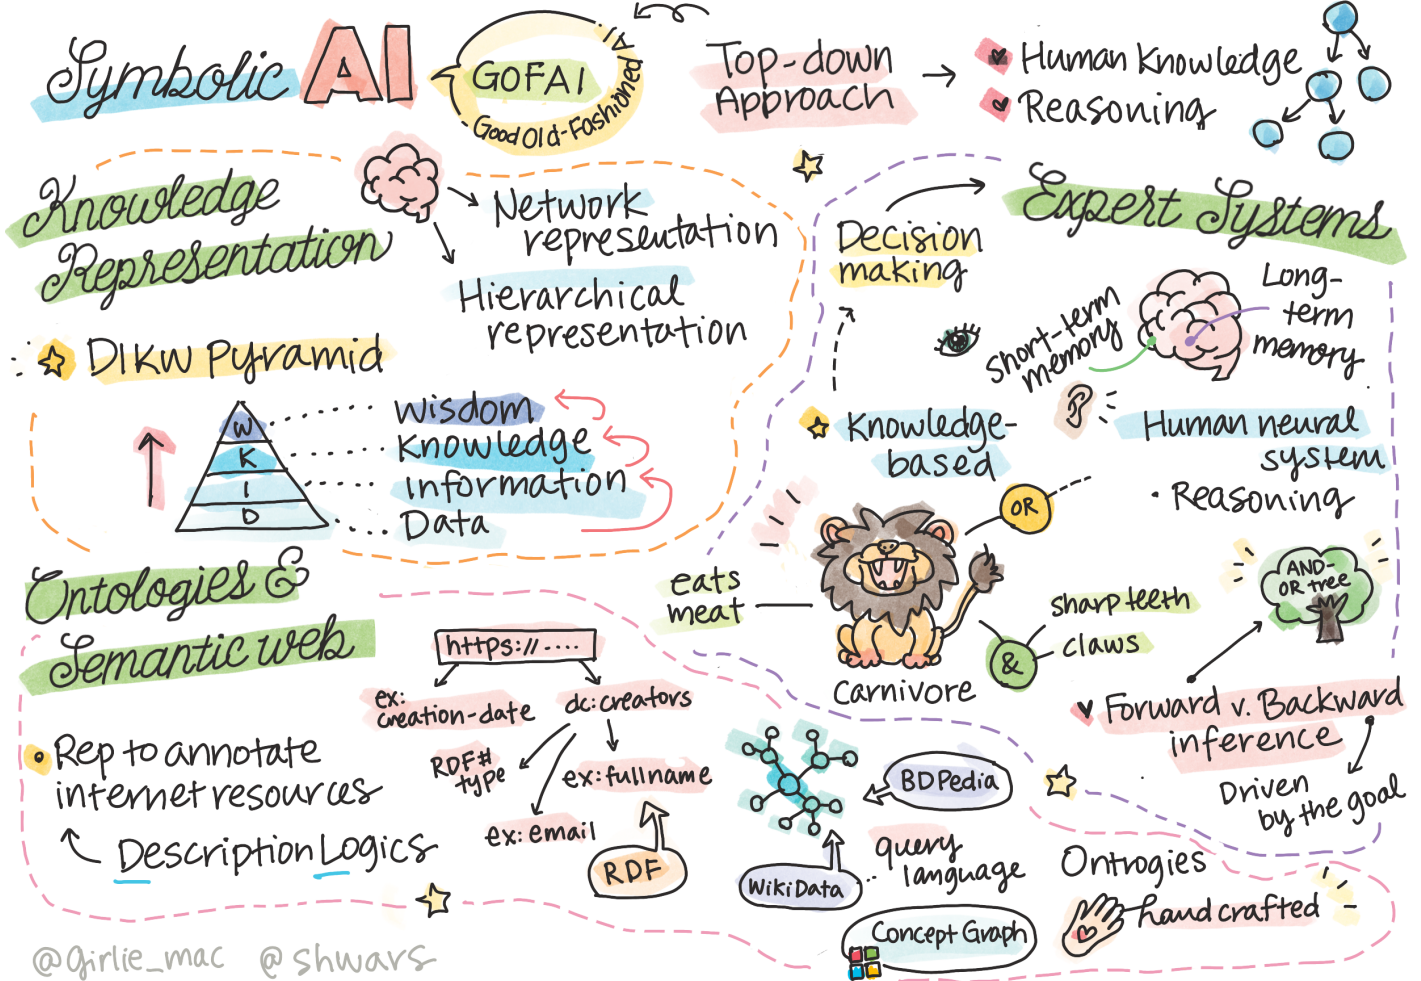 Symbolic AI
GOFAI
Good Old-Fashioned AI.
Top-down
Approach
Human Knowledge
Reasoning
Knowledge
Representation
Network
representation
Hierarchical
representation
DIKW Pyramid
W
K
I
D
Wisdom
Knowledge
Information
Data
Expert Systems
Decision
making
Short-term
memory
Long-
term
memory
Knowledge-
based
Human neural
system
• Reasoning
OR
eats
meat
sharp teeth
claws
&
Carnivore
AND-
OR tree
Forward v. Backward
inference
Driven
by the goal
Ontologies &
Semantic web
https://....
ex:
creation-date
dc:creators
RDF#
type
ex:fullname
ex:email
RDF
Rep to annotate
internet resources
Description Logics
BDPedia
WikiData
query
language
Concept Graph
Ontrogies
handcrafted
@girlie_mac @shwars